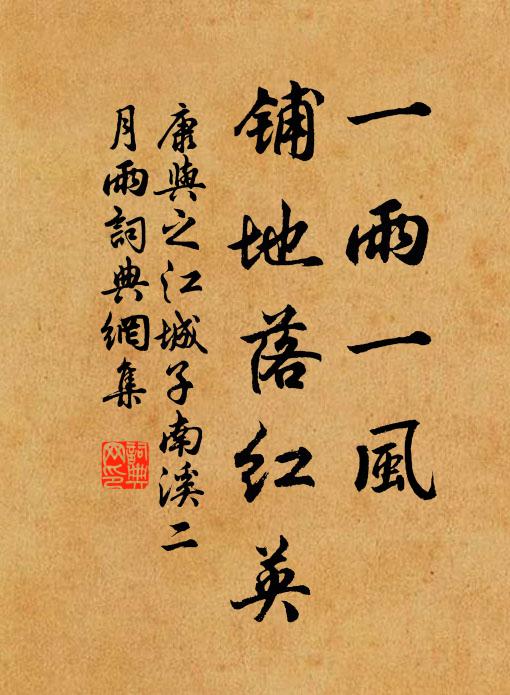 一雨一風
鋪地落红英
康與之江城子南溪二
月雨詞典網集
詞典网印